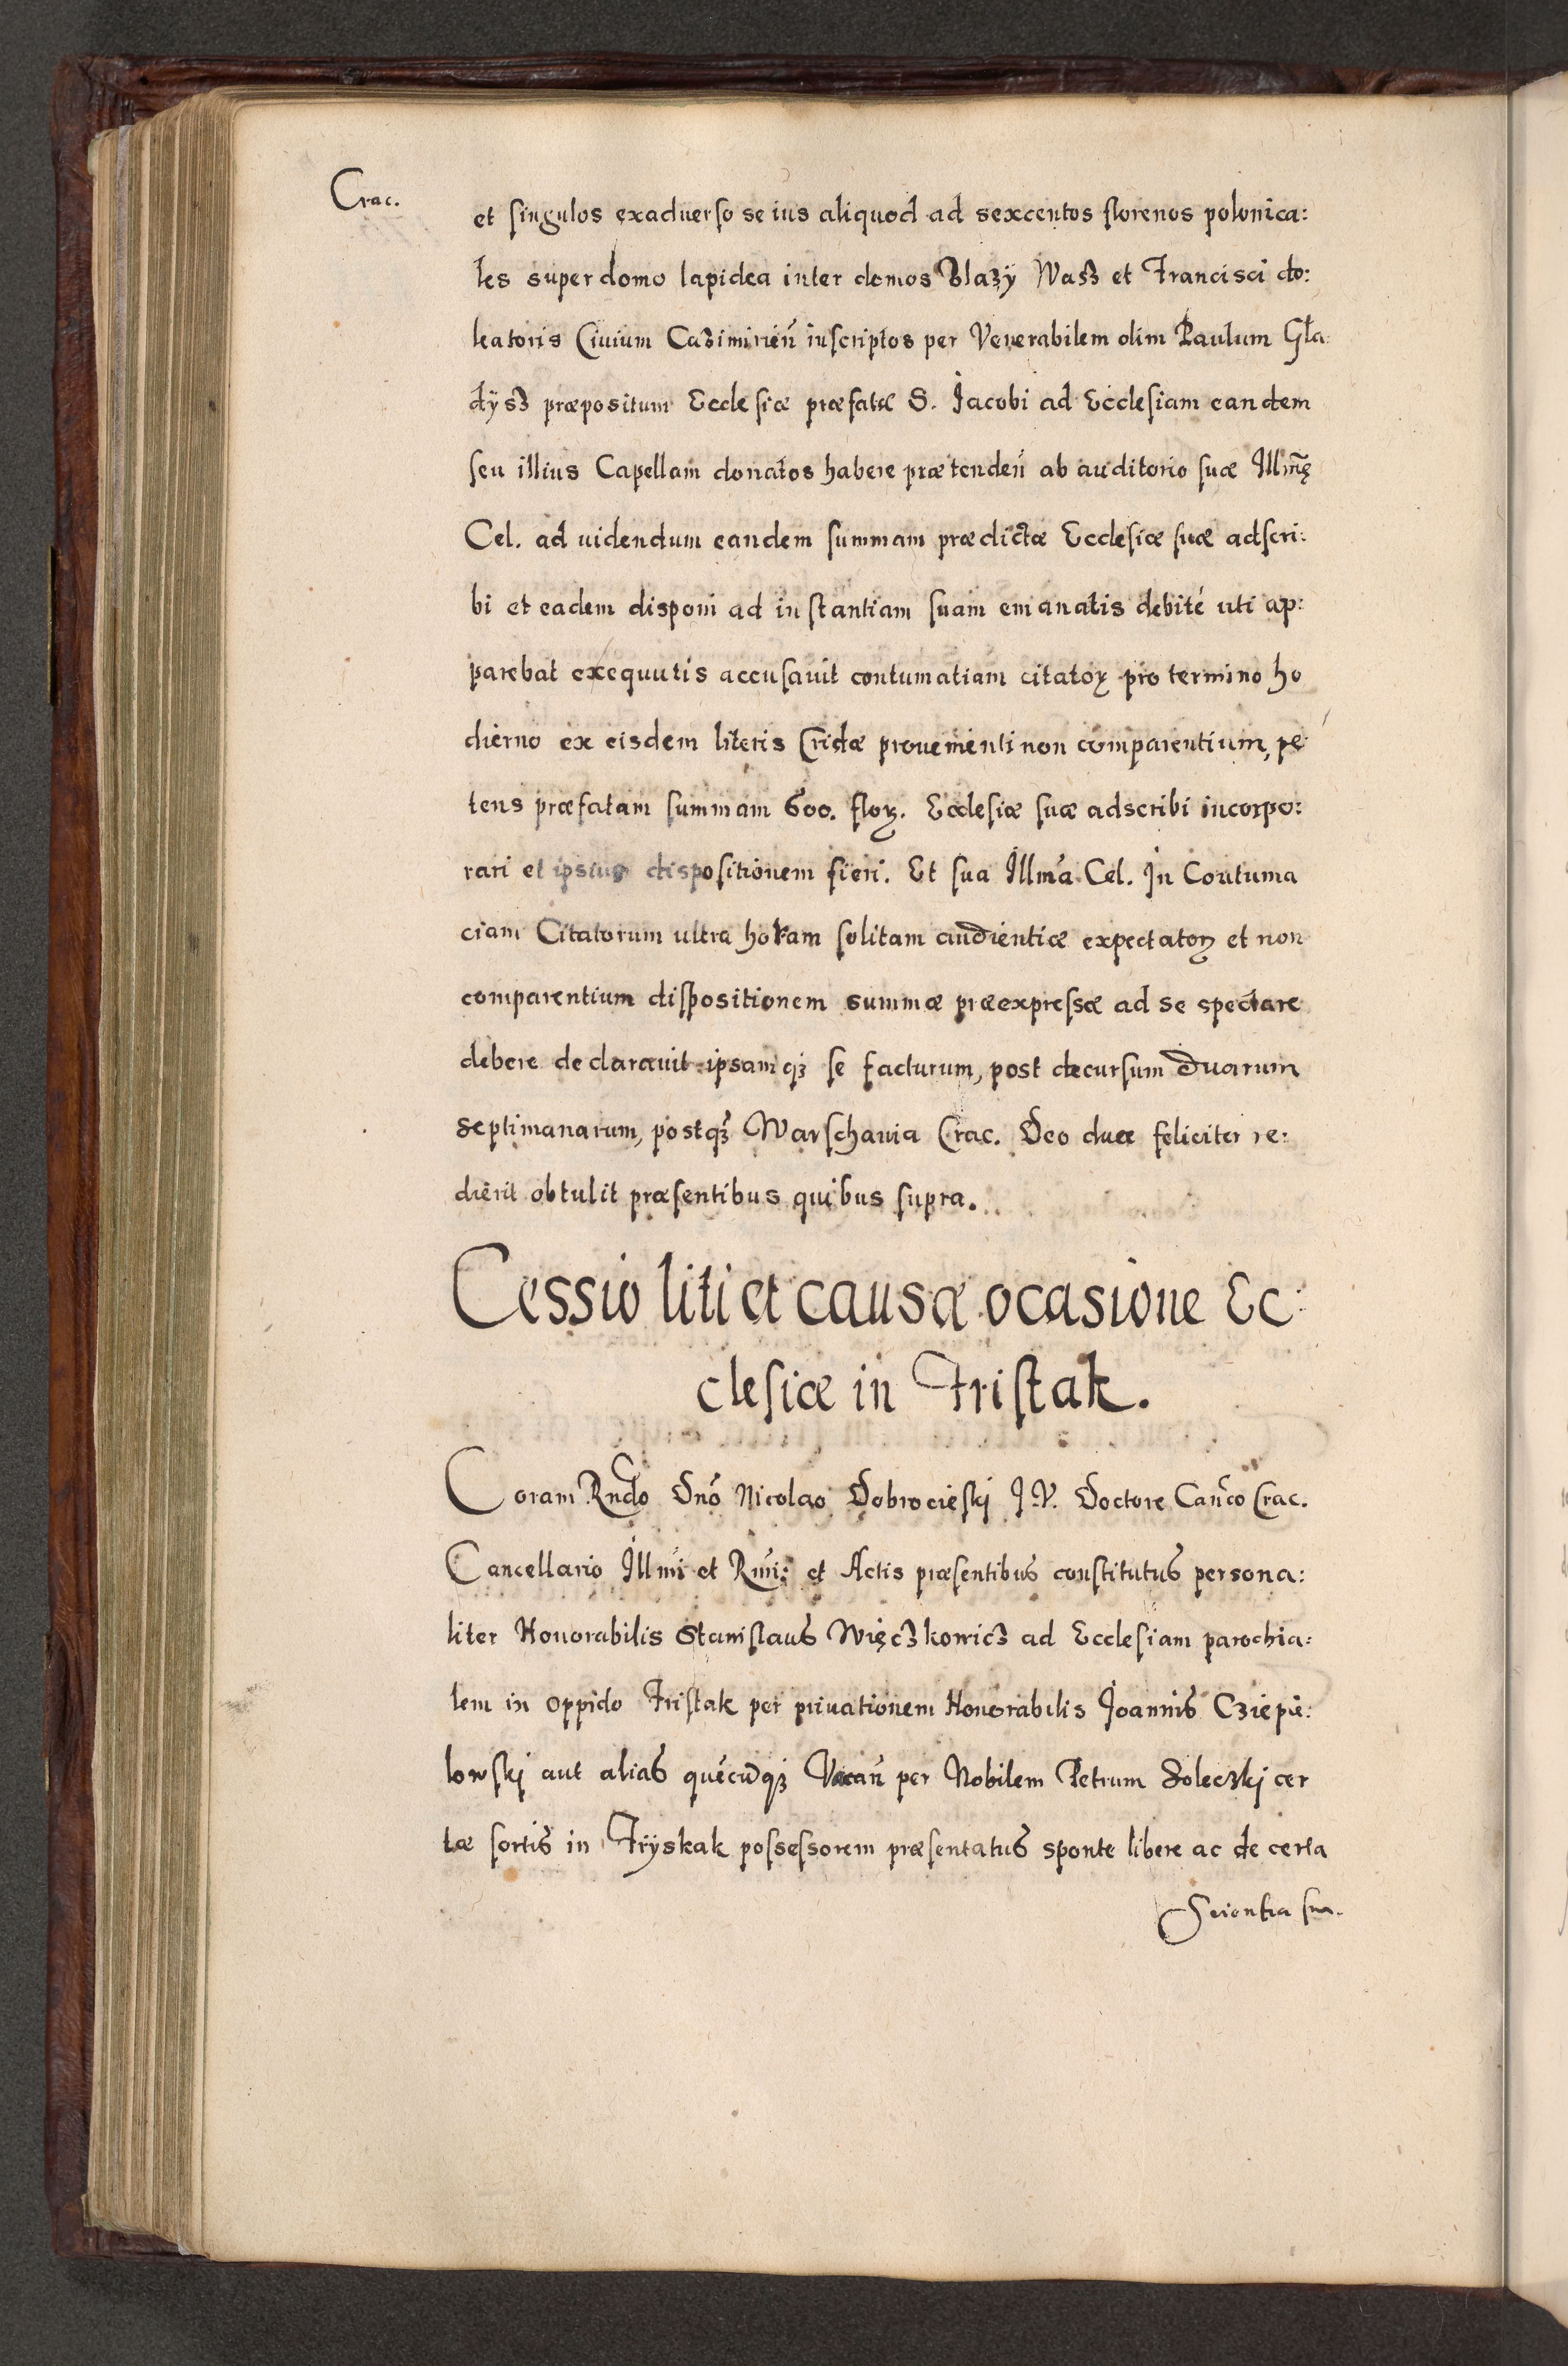 Crac.
et singulos exaduerso se ius aliquod ad sexcentos florenos polonica:
les super domo lapidea inter domos Blazÿ Wasz et Francisci do:
leatoris Ciuium Cazimirień inscriptos per Venerabilem olim Paulum Gła
dÿsz præpositum Ecclesiæ præfatæ S. Jacobi ad Ecclesiam eandem
seu illius Capellam donatos habere prætendeñ ab auditorio suæ Illm̃ę
Cel. ad uidendum eandem summam prædictæ Ecclesiæ suæ adscri:
bi et eadem disponi ad instantiam suam emanatis debité uti ap:
parebat exequutis accusauit contumatiam citatoꝝ pro termino ho
dierno ex eisdem literis Cridæ prouementi non comparentium, pe
tens præfatam summam 600. floꝝ. Ecclesiæ suæ adscribi incorpo:
rari et ipsius dispositionem fieri. Et sua Illm̃a Cel. In Contuma
ciam Citatorum ultra horam solitam audientiæ expectatoꝝ et non
comparentium dispositionem summæ præexpressæ ad se spectare
debere declarauit ipsamqꝫ se facturum, post decursum duarum
septimanarum, postqꝫ Warschauia Crac. Deo duce feliciter re:
dierit obtulit præsentibus quibus supra.
Cessio liti et causæ ocasione Ec:
clesiæ in Fristak.
Coram Rndo Dnõ Nicolao Dobrocieskj J. V. Doctore Cañco Crac.
Cancellario Illmi et Rmi: et Actis præsentibus constitutus persona:
liter Honorabilis Stanislaus Więczkowicz ad Ecclesiam parochia:
lem in oppido Fristak per priuationem Honorabilis Joannis Cziepie:
lowskj aut alias quẽcũqꝫ Vacañ per Nobilem Petrum Soleczkj cer
tæ sortis in Frÿskak possessorem præsentatus sponte libere ac de certa
Scientia sua.